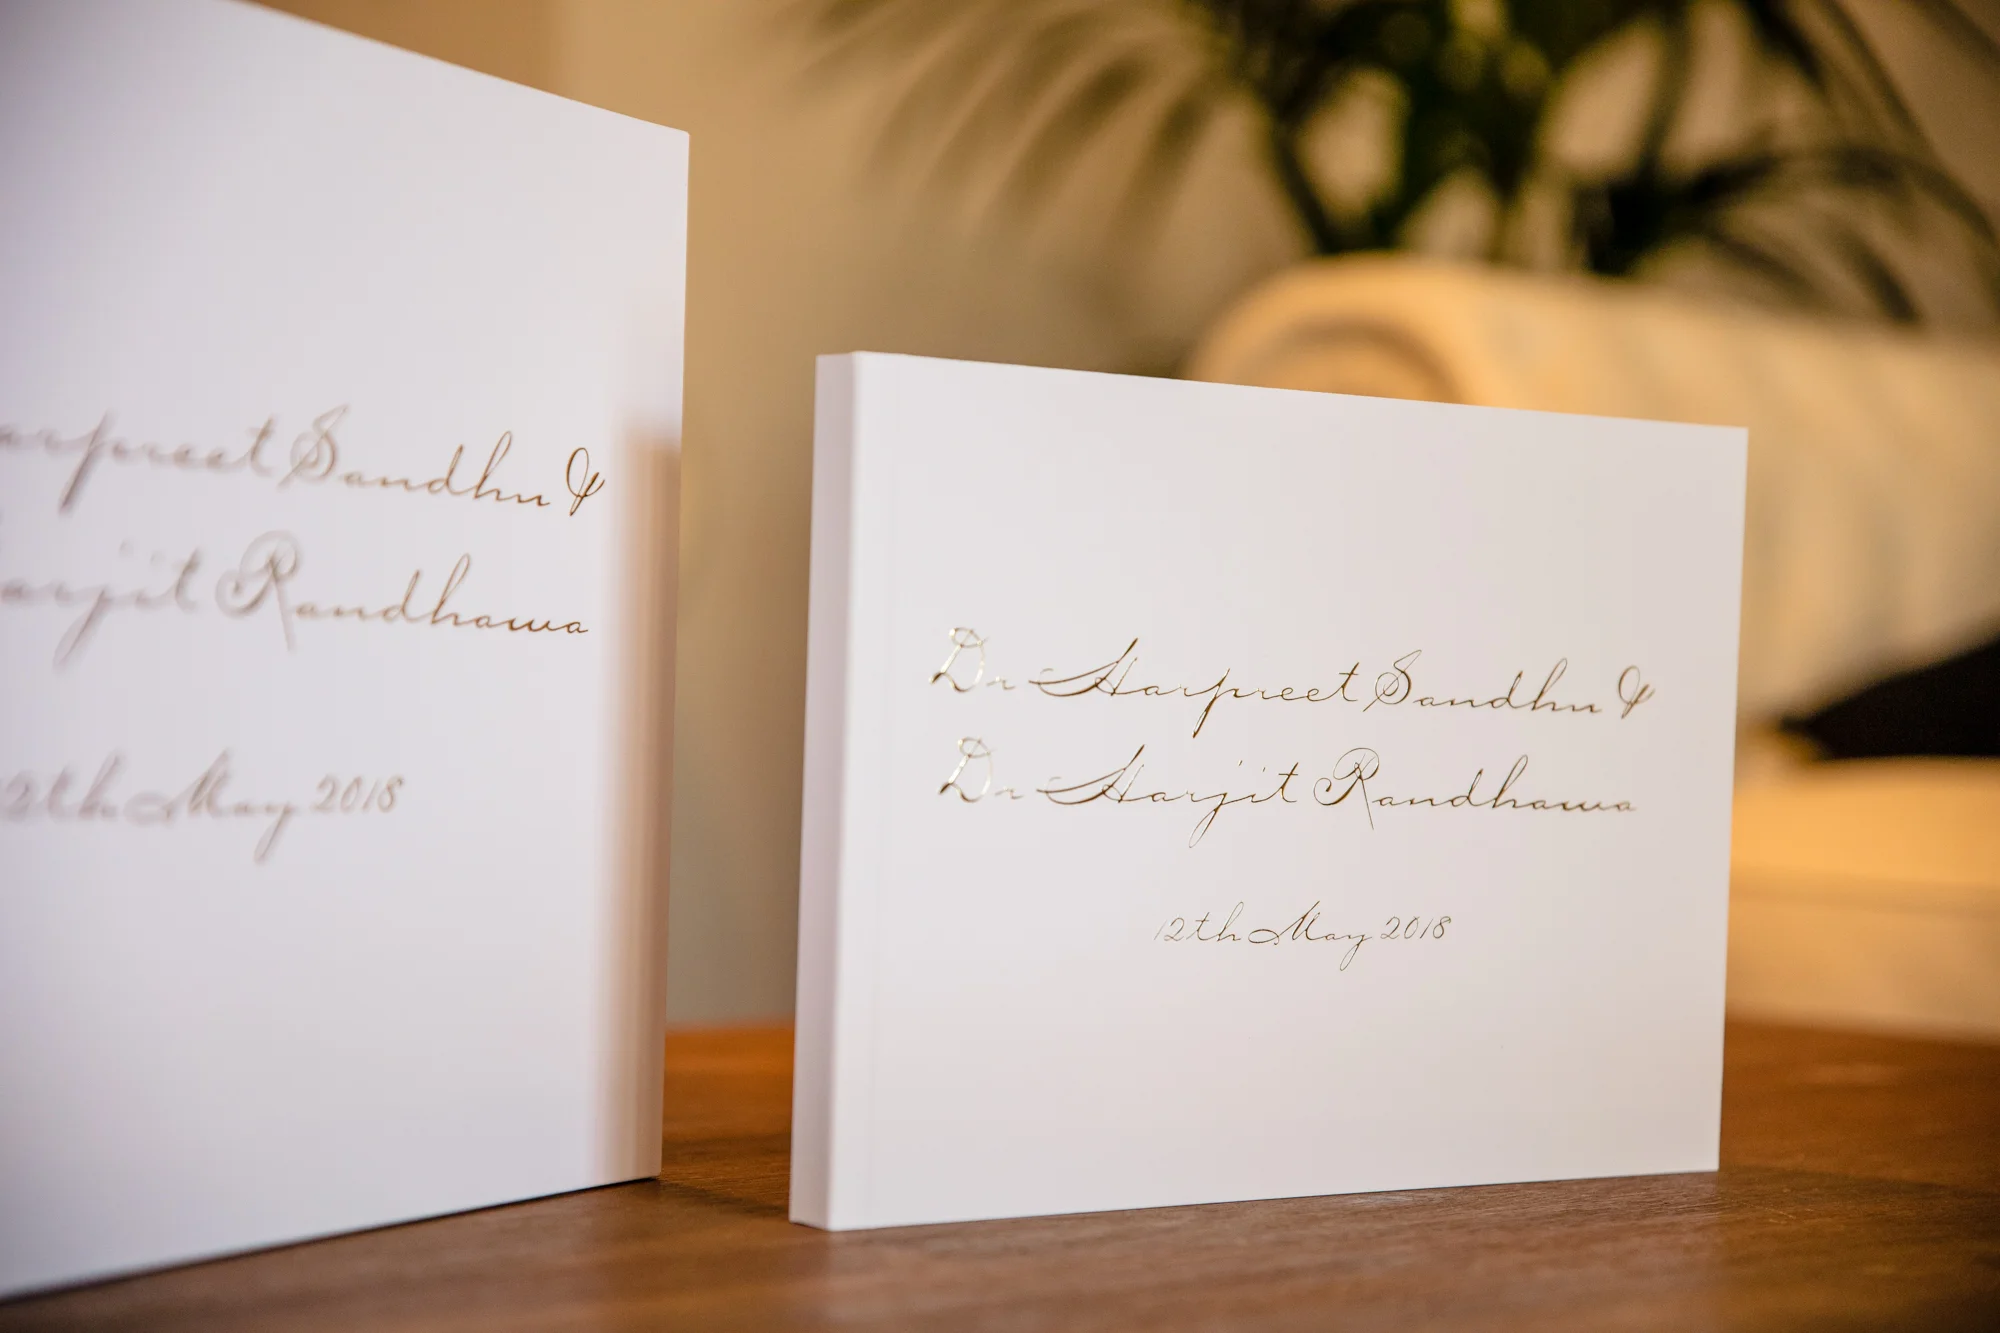 arpreet Sandhu &
arjit Randhawa
12th May 2018
Dr Harpreet Sandhu &
Dr Harjit Randhawa
12th May 2018